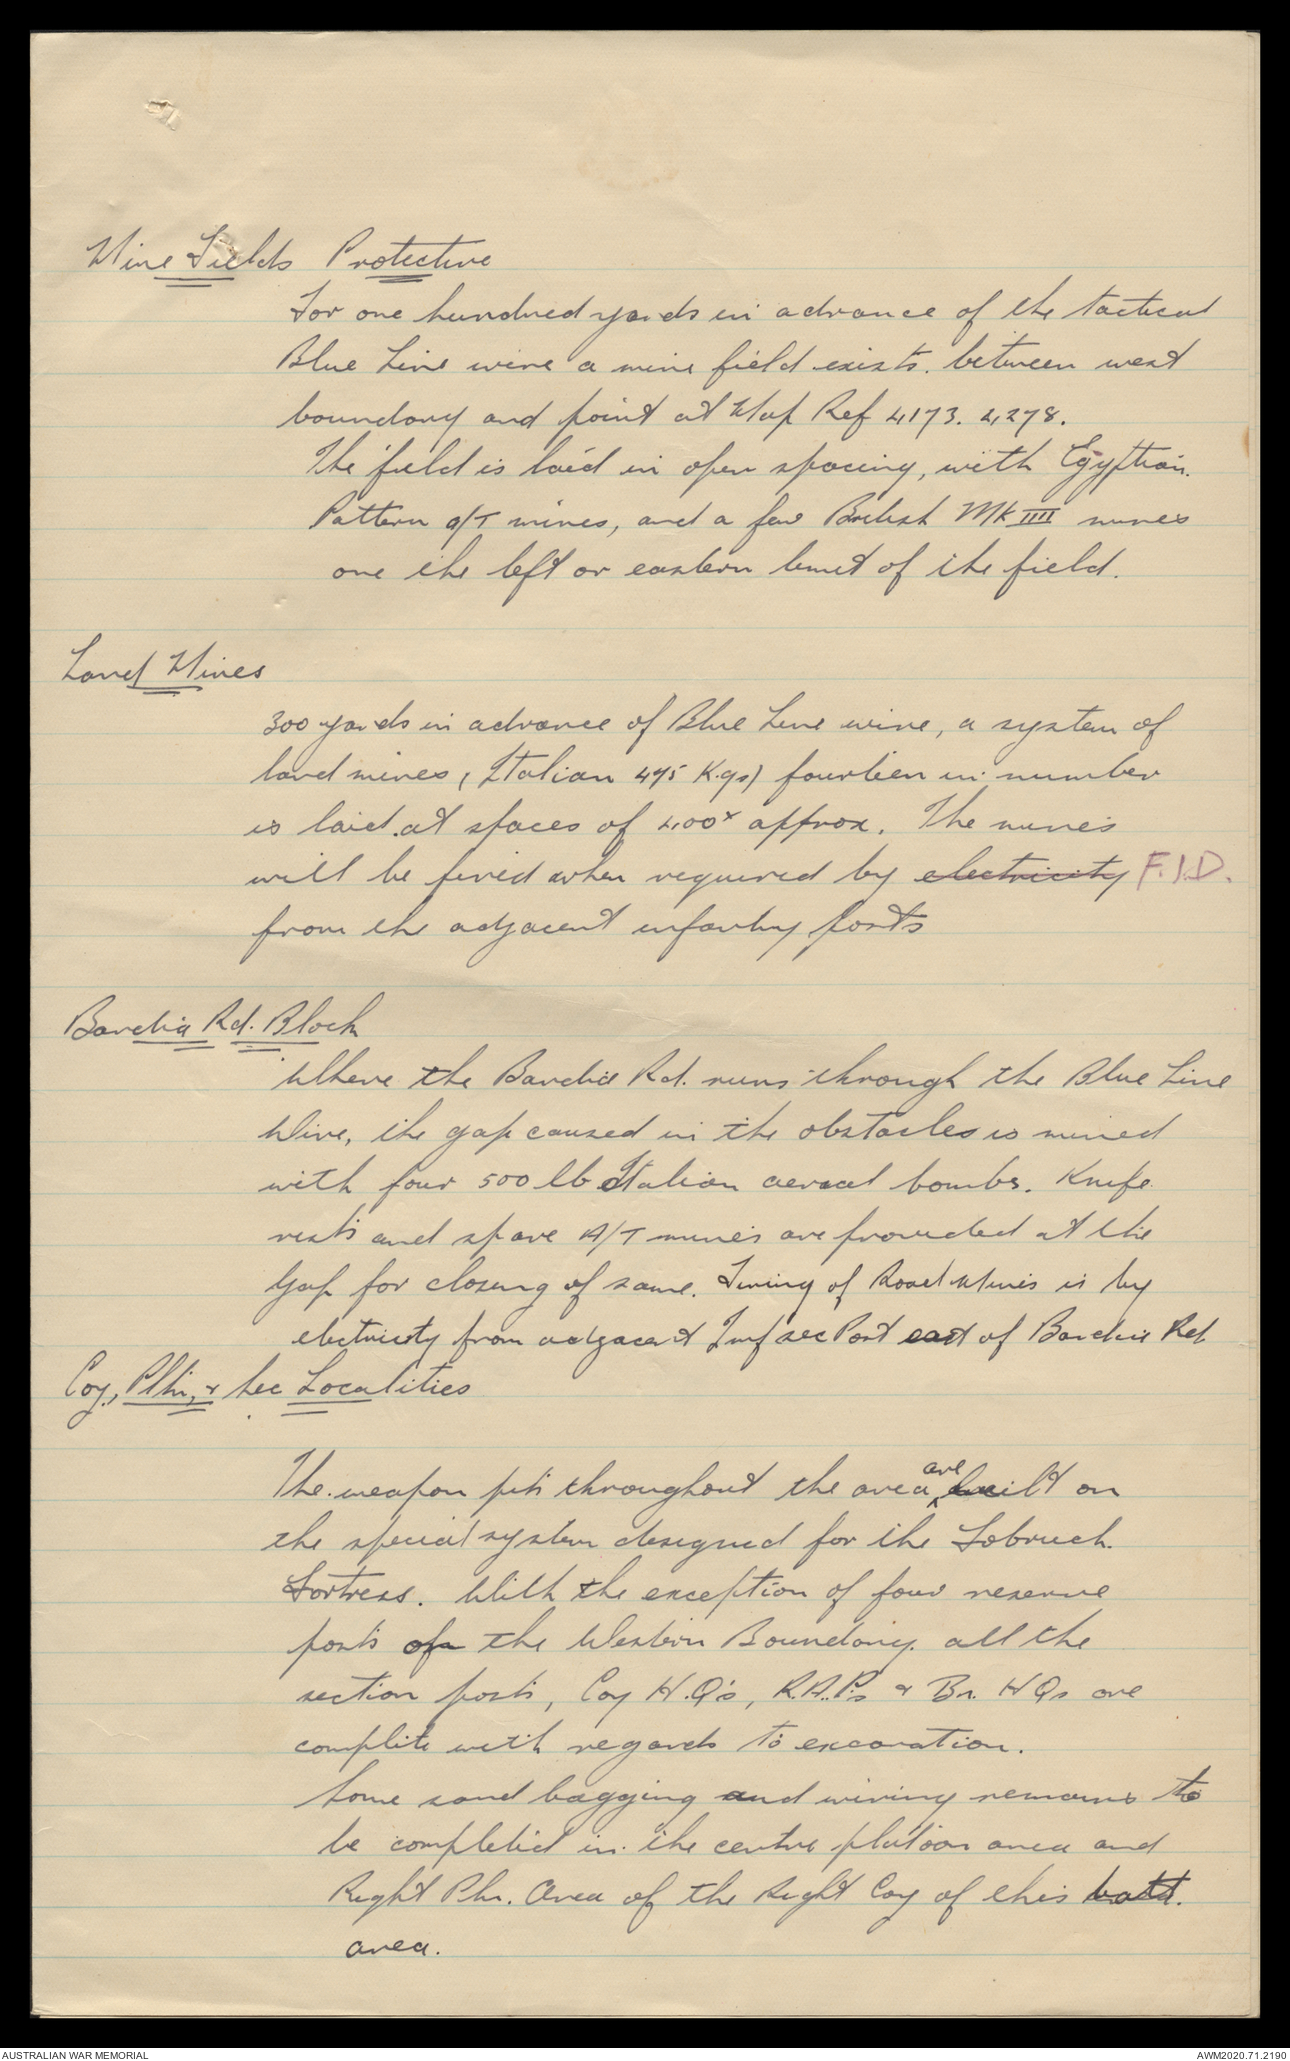 Mine Fields Protective
For one hundred yards in advance of the tactical
Blue Line wire a mine field exists. between west
boundary and point at Map Ref 4173. 4278.
The field is laid in open spacing, with Egyptian.
Pattern a/T mines, and a few British Mk IIII mines
one the left or eastern limit of the field.
Land Mines
300 yards in advance of Blue Line wire, a system of
land mines, (Italian 495 K.gs) fourteen in number
is laid at spaces of 400x approx. The mines
will be fired when required by electricity F.I.D.
from the adjacent infantry posts
Bardia Rd. Block
Where the Bardia Rd. runs through the Blue Line
Wire, the gap caused in the obstacles is mined
with four 500 lb Italian aerial bombs. Knife
rests and spare A/T mines are provided at the
Gap for closing of same. Firing of Road Mines is by
electricity from adjacent Inf sec Post east of Bardia Rd
Coy, Pltn, & Sec Localities
The weapon pits throughout the area are built on
the special system designed for the Tobruch
Fortress. With the exception of four reserve
posts on the Western Boundary. all the
section posts, Coy H.Q's, R.A.P.s & Bn. H Qs are
complete with regards to excavation.
Some sand bagging and wiring remains to
be completed in the centre platoon area and
Right Pln. Area of the Right Coy of this batt.
area.
AUSTRALIAN WAR MEMORIAL
AWM2020.71.2190